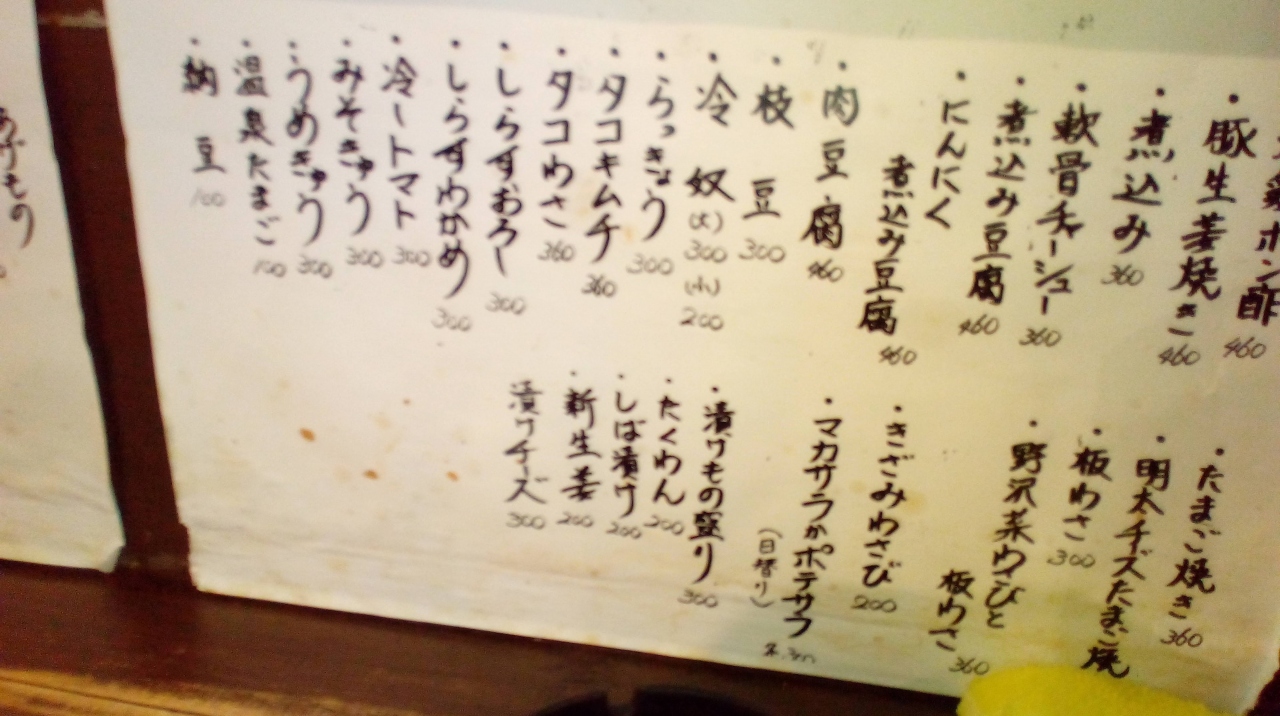 ポン酢 460
・豚生姜焼き 460
・煮込み 360
・軟骨チャーシュー 360
・煮込み豆腐 460
・にんにく
煮込み豆腐 460
・肉豆腐 460
・枝豆 300
・冷奴 (大) 300 (小) 200
・らっきょう 300
・タコキムチ 360
・タコわさ 360
・しらすおろし 300
・しらすわかめ 300
・冷しトマト 300
・みそきゅう 300
・うめきゅう 300
・温泉たまご 100
・納豆 100
・たまご焼き 360
・明太チーズたまご焼
・板わさ 300
・野沢菜わさびと
板わさ 360
・きざみわさび 200
・マカサラかポテサラ
(日替り)
・漬けもの盛り 300
・たくわん 200
・しば漬け 200
・新生姜 200
漬けチーズ 300
あげもの